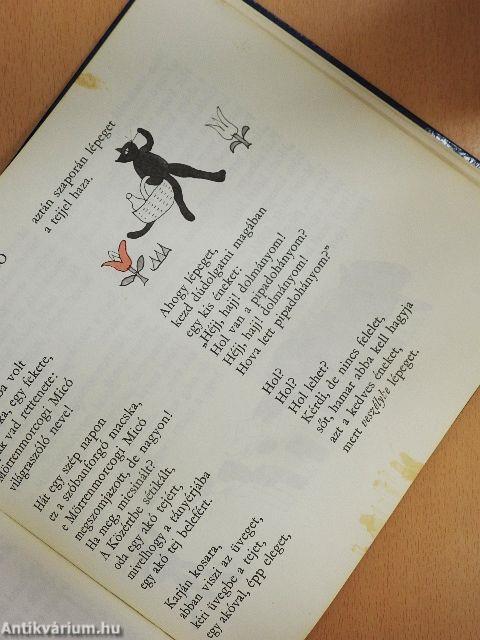 ba volt
ka, egy fekete,
vad rettenete:
Mörrenmorcogi Micó
világraszóló neve!
Hát egy szép napon
ez a szóbanforgó macska,
e Mörrenmorcogi Micó
megszomjazott, de nagyon!
Ha meg, micsinált?
A Közértbe sétikált,
oda egy akó tejért,
mivelhogy a tányérjába
egy akó tej belefért.
Karján kosara,
abban viszi az üveget,
kéri üvegbe a tejet,
egy akóval, épp eleget,
aztán szaporán lépeget
a tejjel haza.
Ahogy lépeget,
kezd dúdolgatni magában
egy kis éneket:
„Héjj, hajj! dolmányom!
Hol van a pipadohányom?
Héjj, hajj! dolmányom!
Hova lett pipadohányom?”
Hol?
Hol?
Hol lehet?
Kérdi, de nincs felelet,
sőt, hamar abba kell hagyja
azt a kedves éneket,
mert veszélybe lépeget.
Antikvárium.hu